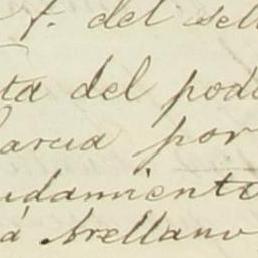 f. del sell
ta del pode
García por
udamiento
á Arellano